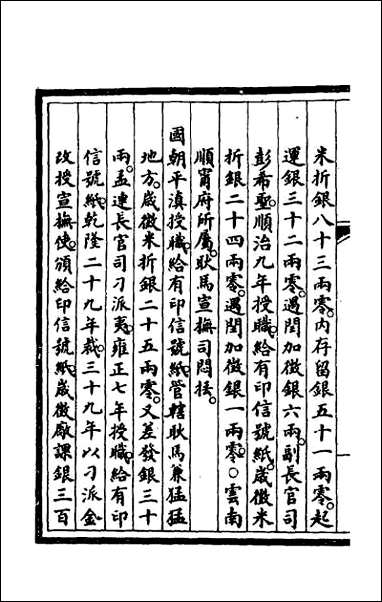 米折銀八十三兩零内存留銀五十一兩零起
運銀三十二兩零遇閏加徵銀六兩副長官司
彭希聖順治九年授職給有印信號紙歲徵米
折銀二十四兩零遇閏加徵銀一兩零○雲南
順甯府所屬耿馬宣撫司悶扺
國朝平滇授職給有印信號紙管轄耿馬兼猛猛
地方歲徵米折銀二十五兩零又差發銀三十
兩孟連長官司刁派夷雍正七年授職給有印
信號紙乾隆二十九年裁三十九年以刁派金
改授宣撫使頒給印信號紙歲徵厰課銀三百